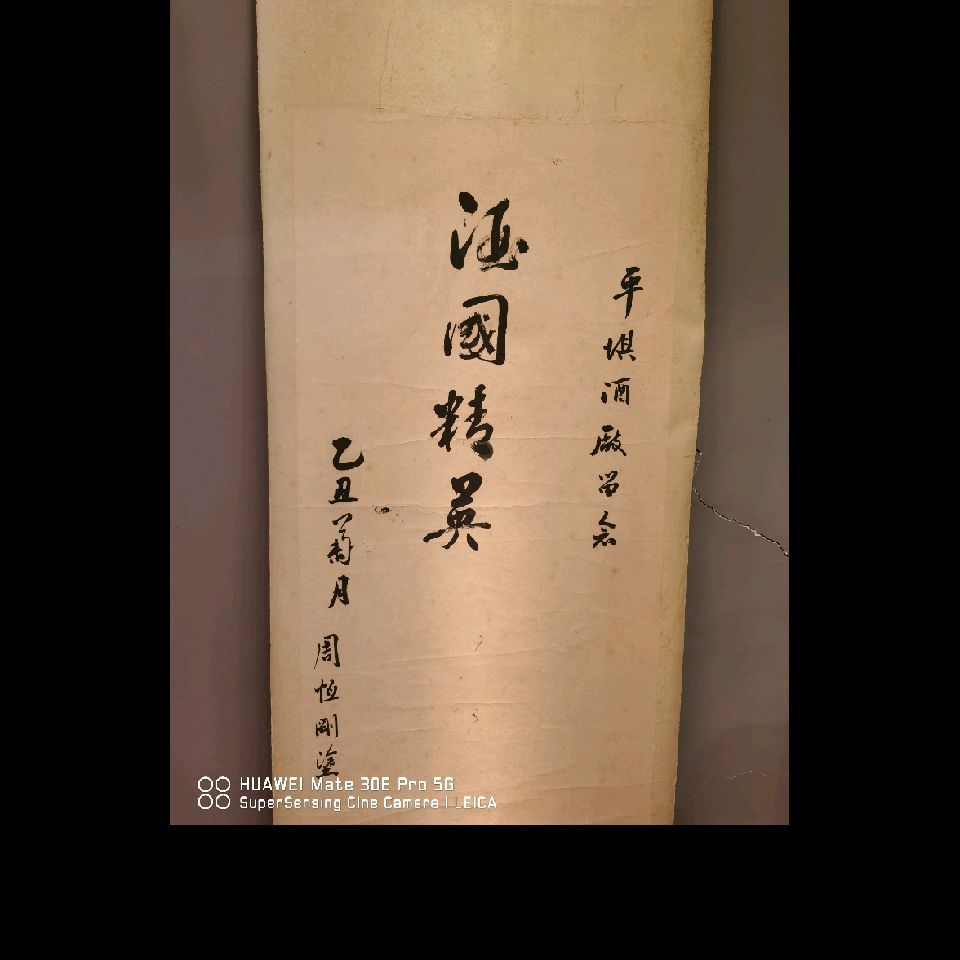 平埧酒廠留念
酒國精英
乙丑月
周恒剛塗
HUAWEI Mate 30E Pro 5G
SuperSensing Cine Camera | LEICA